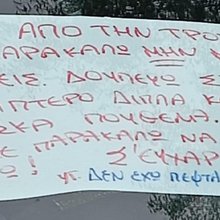 ΑΠΟ ΤΗΝ ΤΡΟ
ΑΡΑΚΑΛΩ ΜΗΝ
ΕΙΣ. ΔΟΥΛΕΥΩ Σ
ΙΠΤΕΡΟ ΔΙΠΛΑ Κ
ΣΚΑ ΠΟΥΘΕΝΑ.
Ε ΠΑΡΑΚΑΛΩ ΝΑ
Ω! Σ'ΕΥΧΑΡ
ΥΓ. ΔΕΝ ΕΧΩ ΠΕΦΤΑ